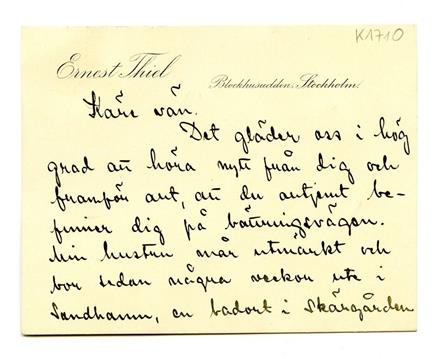 K1710
Ernest Thiel
Blockhusudden, Stockholm.
Käre vän.
Det gläder oss i hög
grad att höra nytt från dig och
framför allt, att du alltjemt be-
finner dig på bättringsvägen.
Min hustru mår utmärkt och
bor sedan några veckor ute i
Sandhamn, en badort i Skärgården